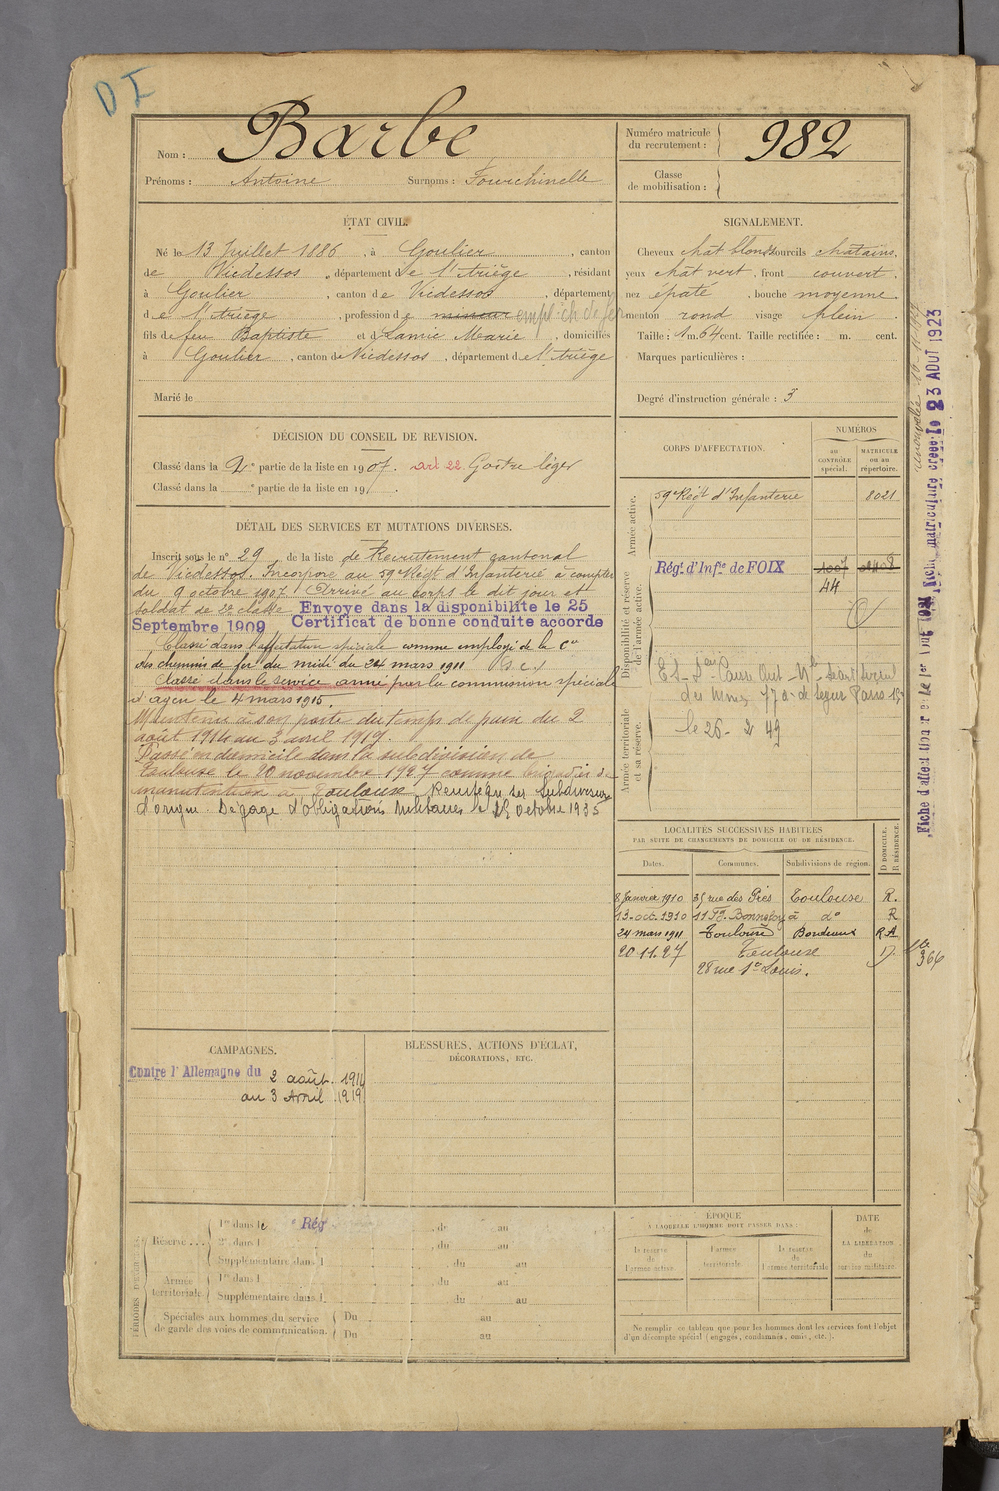 D I
Nom : Barbe
Prénoms : Antoine Surnoms : Fourchinelle
Numéro matricule du recrutement : 982
Classe de mobilisation :
ÉTAT CIVIL.
Né le 13 Juillet 1886, à Goulier, canton
de Vicdessos, département de l'Ariège, résidant
à Goulier, canton de Vicdessos, département
de l'Ariège, profession de mineur empl. ch de fer
fils de feu Baptiste et d Lamic Marie, domiciliés
à Goulier, canton de Vicdessos, département de l'Ariège
Marié le
SIGNALEMENT.
Cheveux chat blonds sourcils chatains,
yeux chat vert, front couvert,
nez épaté, bouche moyenne
menton rond visage plein
Taille : 1 m. 64 cent. Taille rectifiée : m. cent.
Marques particulières :
Degré d'instruction générale : 3
DÉCISION DU CONSEIL DE REVISION.
Classé dans la 2e partie de la liste en 1907. art 22 Goître léger
Classé dans la e partie de la liste en 19 .
DÉTAIL DES SERVICES ET MUTATIONS DIVERSES.
Inscrit sous le n° 29 de la liste de Recrutement cantonal
de Vicdessos. Incorporé au 59e Régt d'Infanterie à compter
du 9 octobre 1907 Arrivé au corps le dit jour et
soldat de 2e classe Envoye dans la disponibilite le 25
Septembre 1909 Certificat de bonne conduite accorde
Classé dans l'affectation spéciale comme employé de la Cie
des chemins de fer du midi du 24 mars 1911
Classé dans le service armé par la commission spéciale
d'agen le 4 mars 1915.
Maintenu à son poste du temps de paix du 2
août 1914 au 3 avril 1919.
Passé en domicile dans la subdivision de
Toulouse le 20 novembre 1927 comme brigadier de
manutention à Toulouse Réintègre sa Subdivision
d'origine. Dégagé d'obligations militaires le 15 octobre 1935
CORPS D'AFFECTATION.
NUMÉROS
au CONTRÔLE spécial.
MATRICULE ou au répertoire.
Armée active.
59e Régt d'Infanterie 8021
Disponibilité et réserve de l'armée active.
Régt. d'Infie de FOIX 1007
44
Armée territoriale et sa réserve.
de Segur Paris 15
le 26-2 49
LOCALITÉS SUCCESSIVES HABITÉES
PAR SUITE DE CHANGEMENTS DE DOMICILE OU DE RÉSIDENCE.
Dates. Communes. Subdivisions de région. D DOMICILE. R RÉSIDENCE.
8 Janvier 1910 35 rue des Prés Toulouse R.
13-oct. 1910 11 Fg. Bonnefoy à do R
24 mars 1911 Toulouse Bordeaux RA
20.11.27 Toulouse D.
28 rue St Louis.
366
CAMPAGNES.
Contre l'Allemagne du 2 août. 1914
au 3 Avril 1919
BLESSURES, ACTIONS D'ÉCLAT,
DÉCORATIONS, ETC.
PÉRIODES D'EXERCICES.
Réserve... 1re dans le e Rég , du au
2e dans l , du au
Supplémentaire dans l du au
Armée territoriale. 1re dans l , du au
Supplémentaire dans l du au
Spéciales aux hommes du service de garde des voies de communication. Du au
Du au
ÉPOQUE
À LAQUELLE L'HOMME DOIT PASSER DANS :
la réserve de l'armée active.
l'armée territoriale.
la réserve de l'armée territoriale
DATE de LA LIBÉRATION du service militaire.
Ne remplir ce tableau que pour les hommes dont les services font l'objet
d'un décompte spécial (engagés, condamnés, omis, etc.).
Fiche d'affectation
Fiche matriculaire créée le 23 AOUT 1923